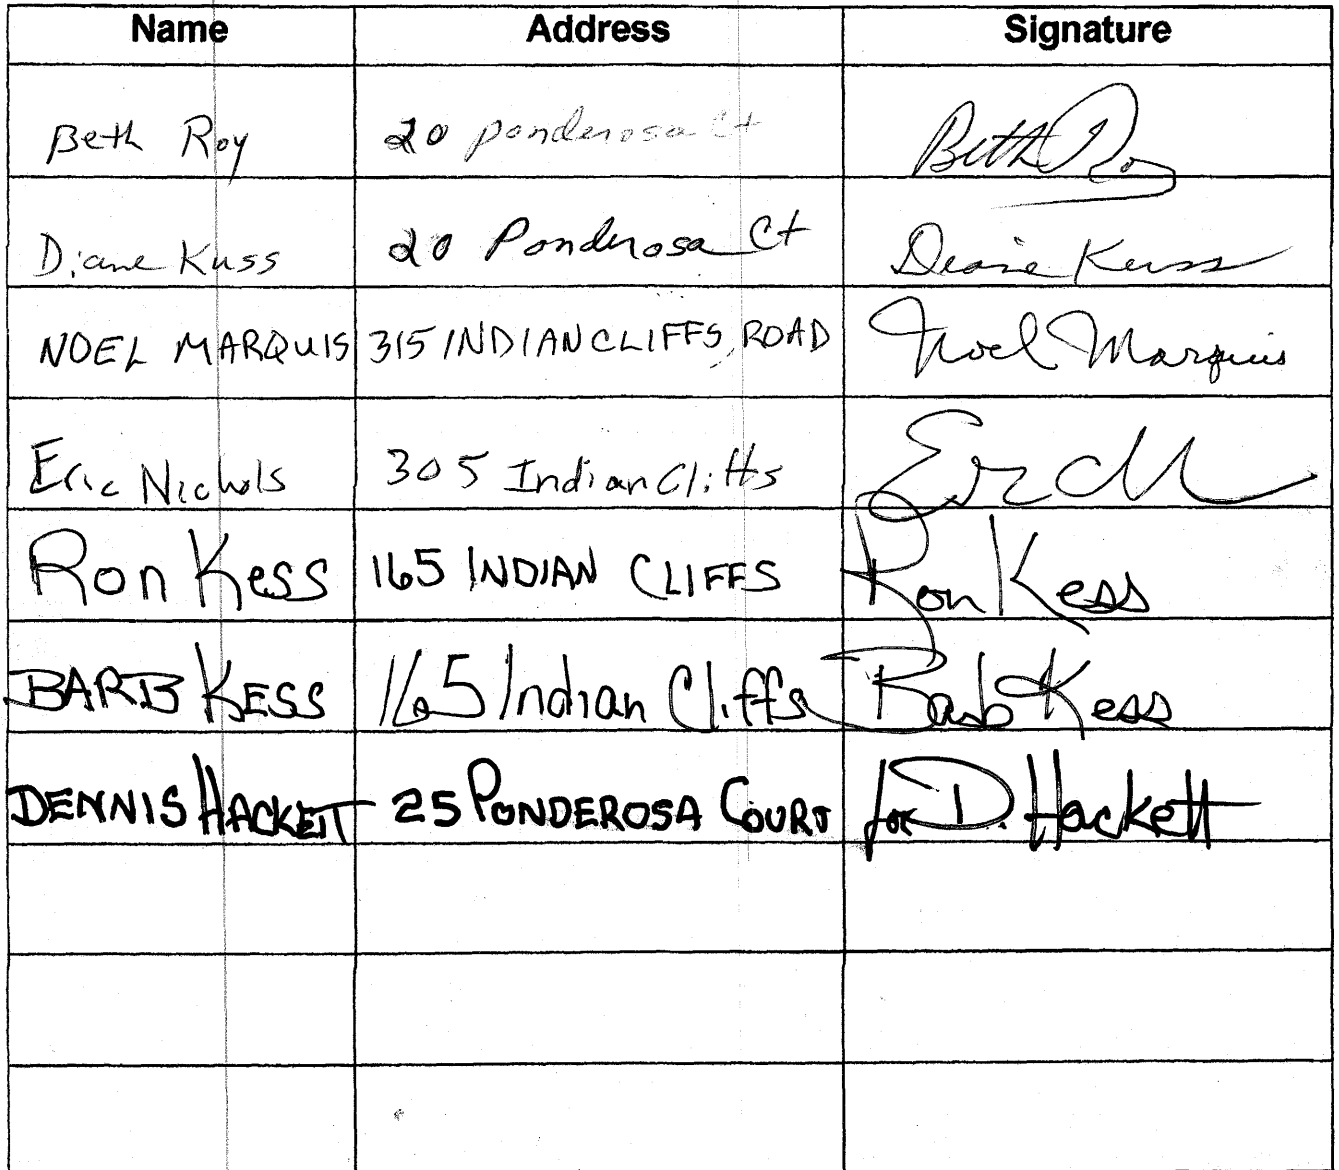 Name Address Signature
Beth Roy 20 ponderosa Ct Beth Roy
Diane Kuss 20 Ponderosa Ct Diane Kuss
NOEL MARQUIS 315 INDIAN CLIFFS ROAD Noel Marquis
Eric Nichols 305 Indian Cliffs
Ron Kess 165 INDIAN CLIFFS Ron Kess
BARB KESS 165 Indian Cliffs Barb Kess
DENNIS HACKETT 25 PONDEROSA COURT for D. Hackett